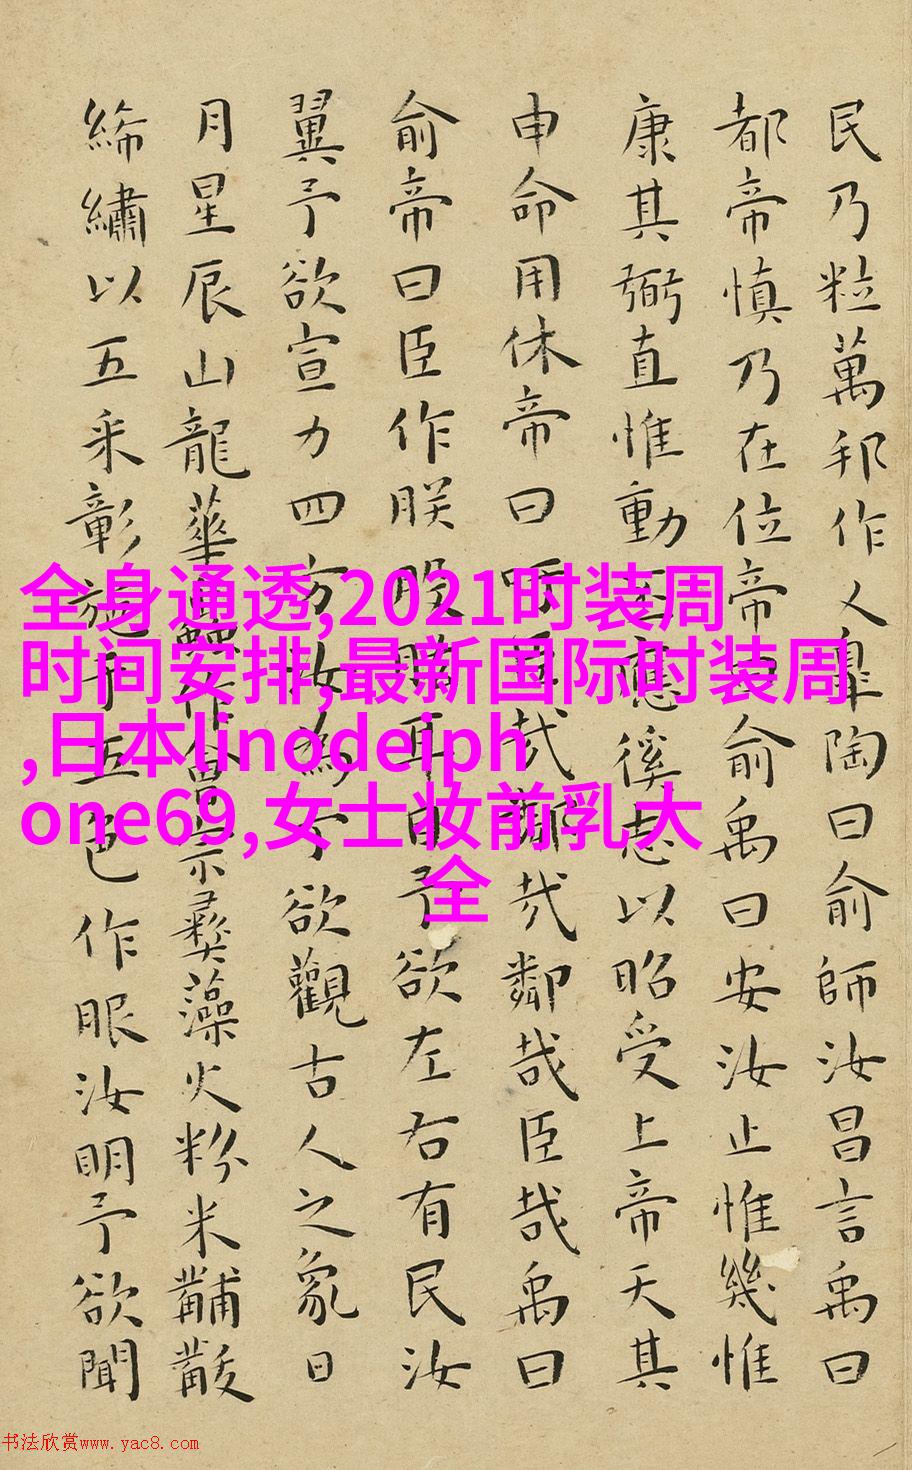 民乃粒萬邦作乂臯陶曰俞師汝昌言禹曰
都帝慎乃在位帝曰俞禹曰安汝止惟幾惟
康其弼直惟動丕應徯志以昭受上帝天其
申命用休帝曰吁臣哉鄰哉鄰哉臣哉禹曰
俞帝曰臣作朕股肱耳目予欲左右有民汝
翼予欲宣力四方汝為予欲觀古人之象日
月星辰山龍華蟲作會宗彝藻火粉米黼黻
絺繡以五采彰施于五色作眼汝明予欲聞
全身通透,2021时装周
时间安排,最新国际时装周
,日本linodeiph
one69,女士妆前乳大
全
书法欣赏www.yac8.com